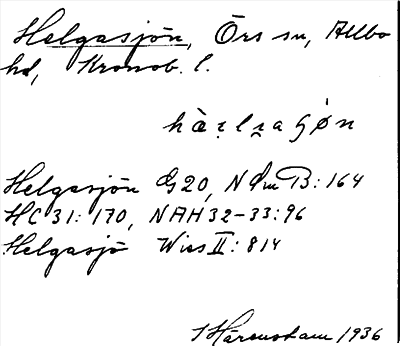 Helgasjön, Örs sn, Allbo
hd, Kronob. l.
hæ̀lɹaɧøn
Helgasjön G20, NSmB: 164
HC 31: 170, NAH 32-33: 96
Helgasjö Wies II: 814
1936